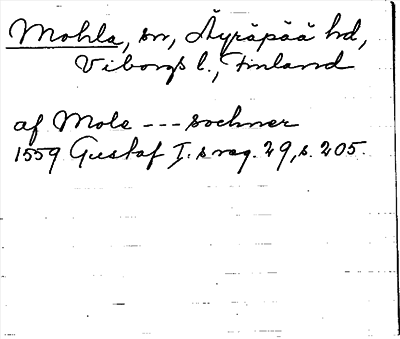 Mohla, sn, Äyräpää hd,
Viborgs l., Finland
af Mole --- sochner
1559 Gustaf I:s reg. 29, s. 205.